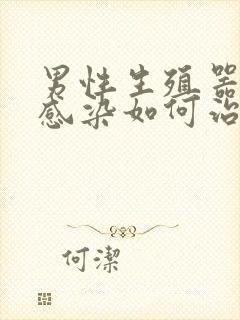 男性生殖器
感染如何治
何潔